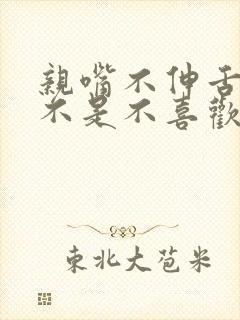 親嘴不伸舌
不是不喜歡
東北大苞米